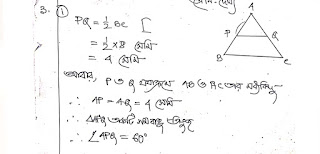 সেমি
A
3. ①
PQ = ½ BC [
P
Q
= ½ × 8 সেমি
B
C
= 4 সেমি
আবার, P ও Q যথাক্রমে AB ও AC এর মধ্যবিন্দু
∴ AP = AQ = 4 সেমি
∴ ΔAPQ একটি সমবাহু ত্রিভুজ
∴ ∠APQ = 60°